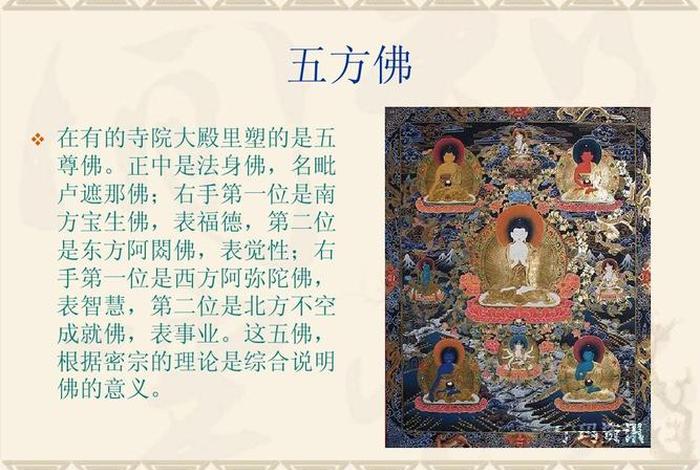 五方佛
❖ 在有的寺院大殿里塑的是五
尊佛。正中是法身佛，名毗
卢遮那佛；右手第一位是南
方宝生佛，表福德，第二位
是东方阿閦佛，表觉性；右
手第一位是西方阿弥陀佛，
表智慧，第二位是北方不空
成就佛，表事业。这五佛，
根据密宗的理论是综合说明
佛的意义。